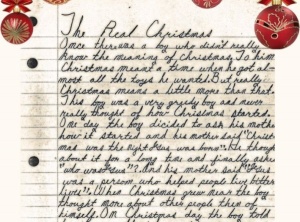 The Real Christmas
Once there was a boy who didn't really
know the meaning of Christmas. To him
Christmas meant a time when he got al-
most all the toys he wanted. But really
Christmas means a little more than that.
This boy was a very greedy boy and never
really thought of how Christmas started.
One day the boy decided to ask his mother
how it started and his mother said "Christ
mas was the night was born". He though
about it for a long time and finally asked
"who was ?" And his mother said
was a person who helped people live better
". When Christmas grew near the boy
thought more about other people then of
himself. On Christmas day the boy told